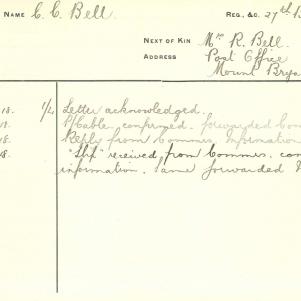 NAME C. C. Bell. REG., &C. 27th
NEXT OF KIN Mrs R. Bell.
ADDRESS Post Office
Mount Brya
18. 1/4 Letter acknowledged.
Cable, confirmed. forwarded
18. Reply from Commes. Information
18. "Slip" received from Commes. con
information. Same forwarded